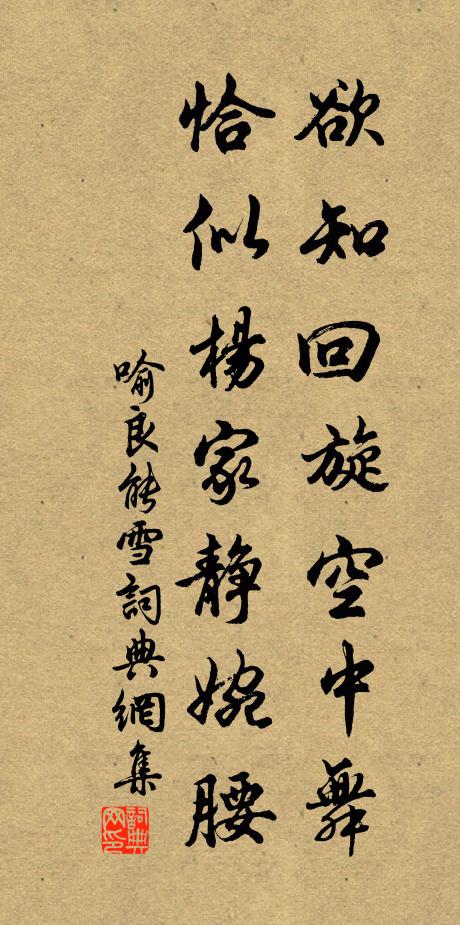 欲知回旋空中舞
恰似楊家静婉腰
喻良能雪詞典網集
詞典網印